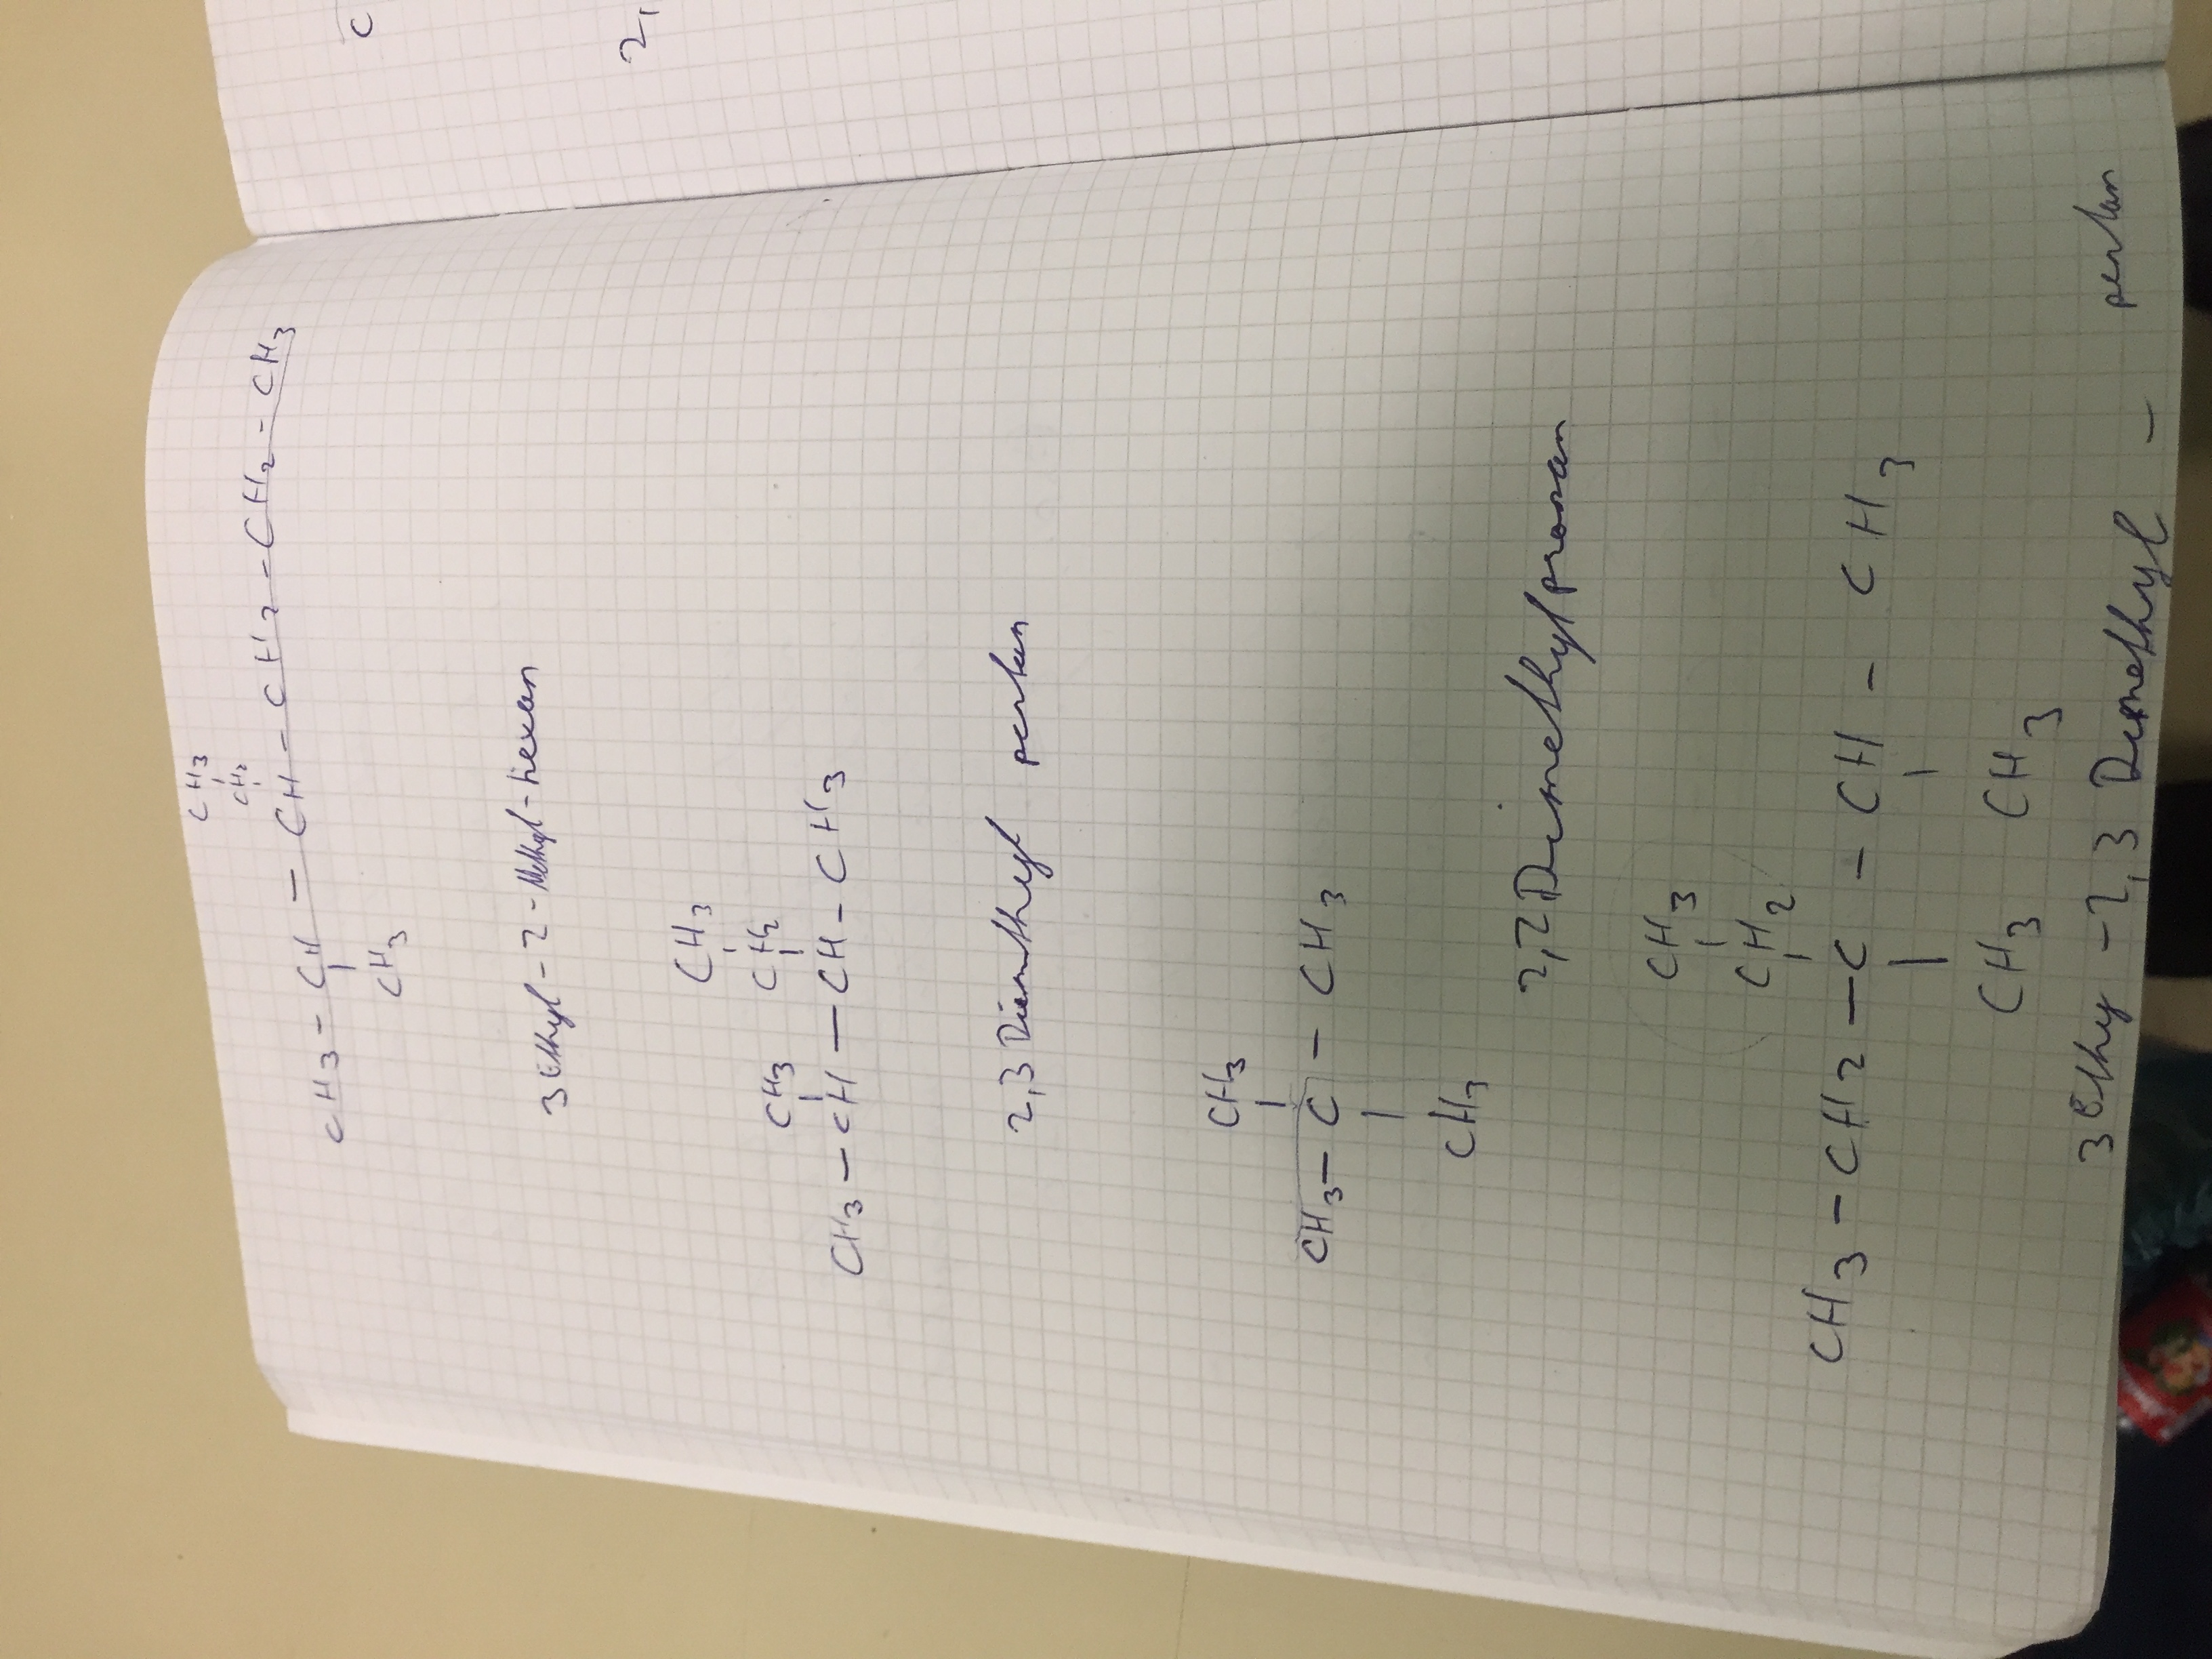 CH3
CH2
CH3 - CH - CH - CH2 - CH2 - CH3
CH3
C
3 Ethyl - 2 - Methyl - hexan
2,
CH3
CH3 CH2
CH3 - CH - CH - CH3
2,3 Dimethyl pentan
CH3
CH3 - C - CH3
CH3
2,2 Dimethylpropan
CH3
CH2
CH3 - CH2 - C - CH - CH3
CH3 CH3
3 Ethy - 2,3 Dimethyl - pentan